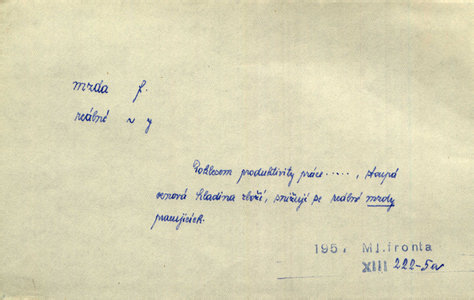 mzda f.
reálné ~ y
Poklesem produktivity práce....., stoupá
cenová hladina zboží, snižují se reálné mzdy
pracujících.
1957 Ml.fronta
XIII 222-5a